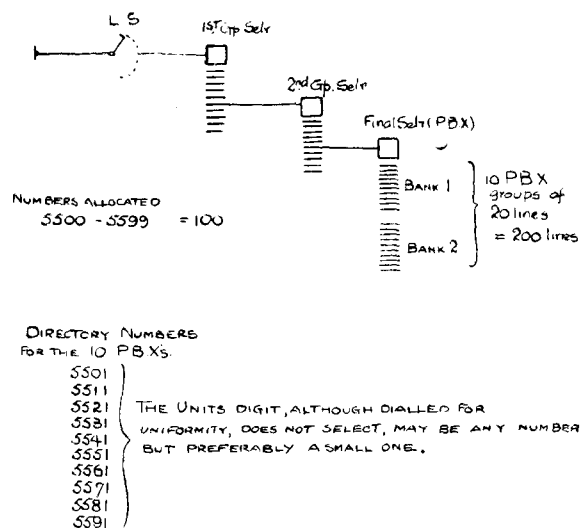 L S
1ST Grp Selr
2nd Gp. Selr
Final Selr (P.B.X)
BANK 1
BANK 2
10 P B X
groups of
20 lines
= 200 lines
NUMBERS ALLOCATED
5500 - 5599 = 100
DIRECTORY NUMBERS
FOR THE 10 P.B.X's.
5501
5511
5521
5531
5541
5551
5561
5571
5581
5591
THE UNITS DIGIT, ALTHOUGH DIALLED FOR
UNIFORMITY, DOES NOT SELECT, MAY BE ANY NUMBER
BUT PREFERABLY A SMALL ONE.